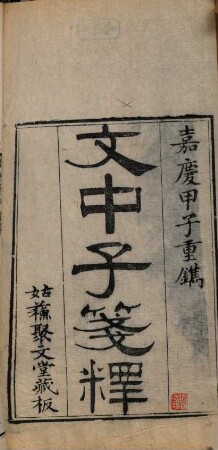 嘉慶甲子重鐫
文中子箋釋
姑蘇聚文堂藏板